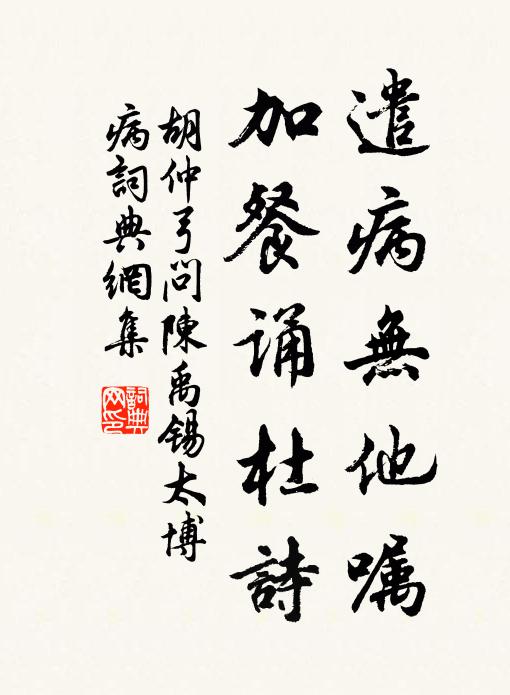 遣病無他嘱
加餐诵杜詩
胡仲弓問陳禹錫太博
病詞典網集
詞典网印